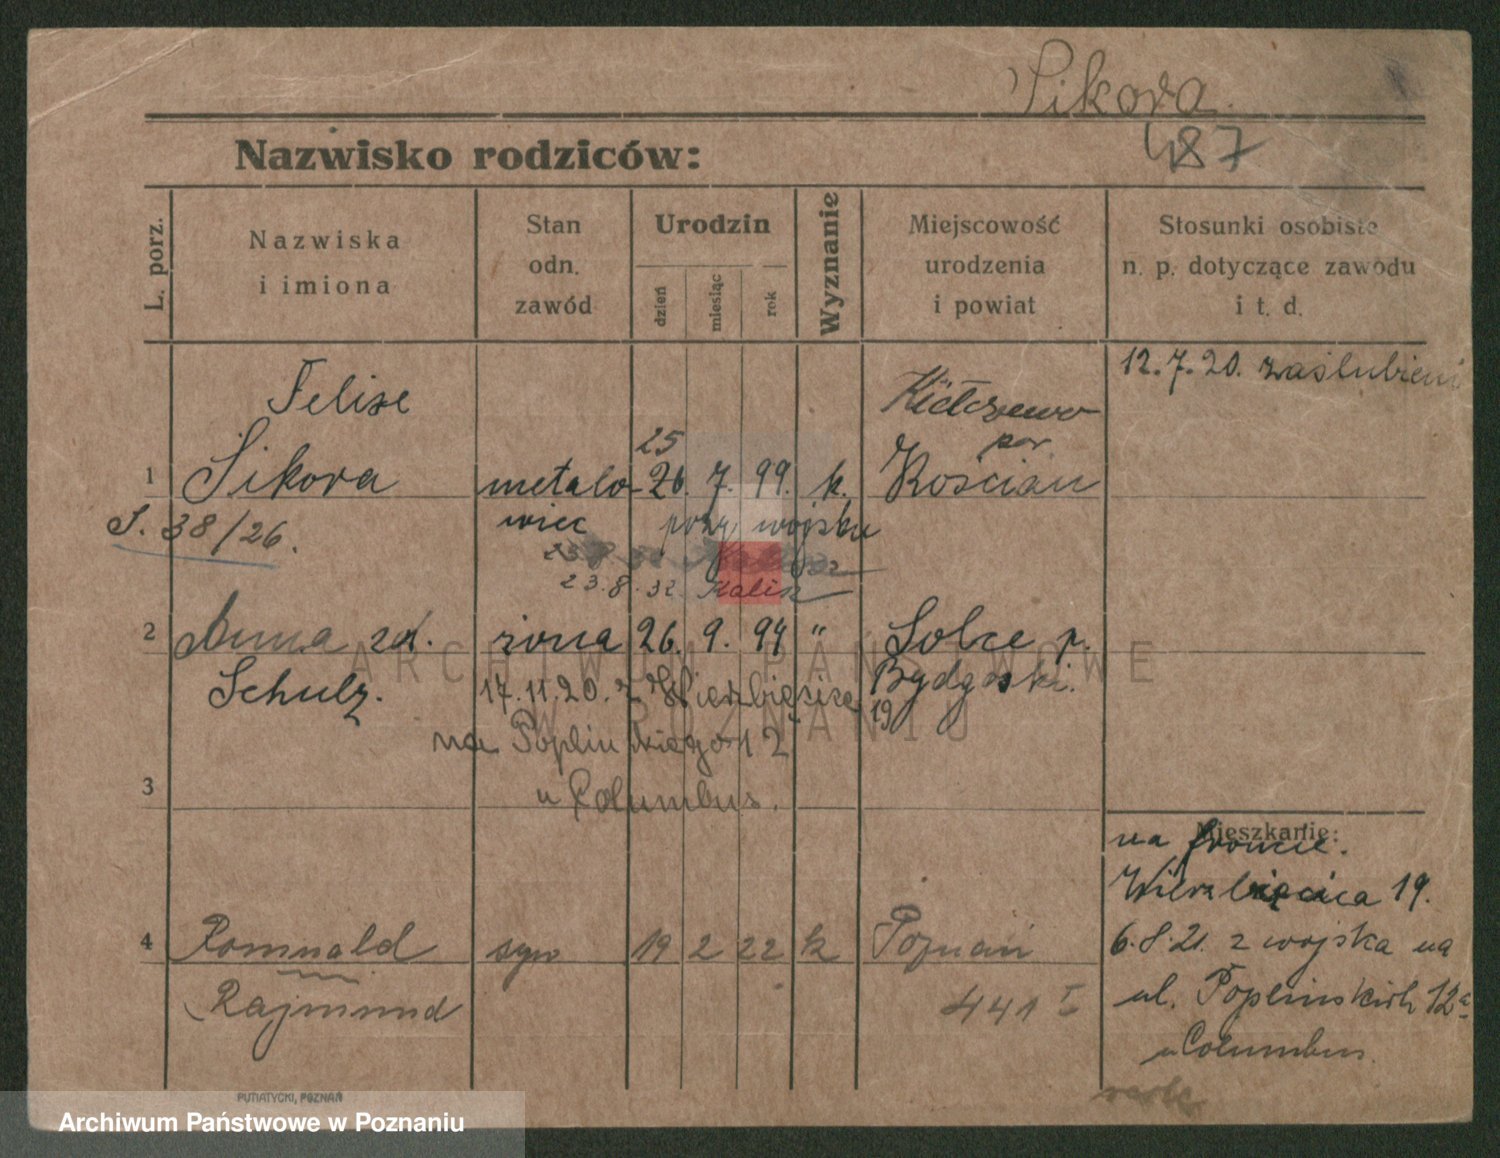 Sikora
487
Nazwisko rodziców:
L. porz.
Nazwiska
i imiona
Stan
odn.
zawód
Urodzin
dzień
miesiąc
rok
Wyznanie
Miejscowość
urodzenia
i powiat
Stosunki osobiste
n. p. dotyczące zawodu
i t. d.
12.7.20. zaślubieni
Felixe
Kiełczewo
25
pow
1 Sikora metalo- 26. 7. 99. k. Kościan
S. 38/26. wiec przy wojsku
23.8.32. Kalisz
2 Anna zd. żona 26. 9. 94 " Solce p.
Schulz. 17.11.20. z Wierzbięcice 19 Bydgoski.
na Poplińskiego 12
u Columbus.
3
Mieszkanie:
na froncie.
Wierzbięcica 19.
4 Romuald syn 19 2 22 k Poznań
6.8.21. z wojska na
Rajmund
441 I
ul. Poplinskich 12a
u Columbus.
PUTIATYCKI, POZNAŃ
ARCHIWUM PAŃSTWOWE
W POZNANIU
Archiwum Państwowe w Poznaniu